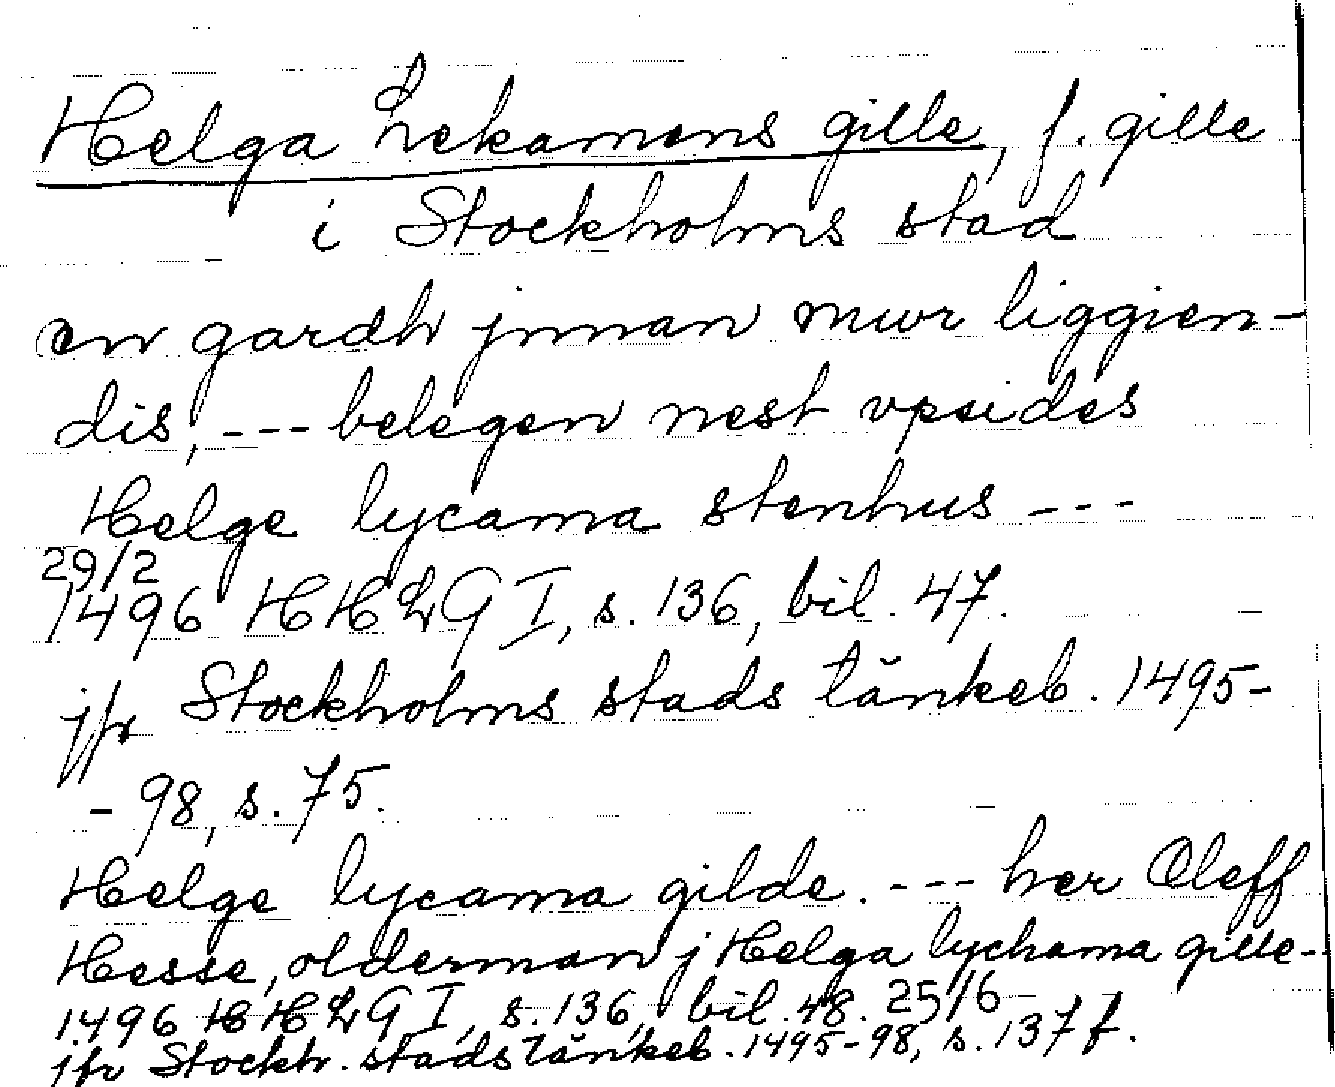 Helga Lekamens gille, f. gille
i Stockholms stad
en gardh jnnan mwr liggien-
dis, --- belegen nest vpsides
Helge lycama stenhus ---
29/2
1496 HHLG I, s. 136, bil. 47.
jfr Stockholms stads tänkeb. 1495-
- 98, s. 75.
Helge lycama gilde. --- her Oleff
Hesse, olderman j Helga lychama gille-
1496 HHLG I, s. 136, bil. 48. 25/6
jfr Stockh. stads tänkeb. 1495-98, s. 137 f.